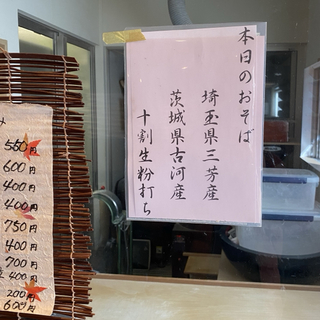 本日のおそば
埼玉県三芳産
茨城県古河産
十割生粉打ち
550円
600円
400円
400円
750円
400円
700円
400円
200円
600円